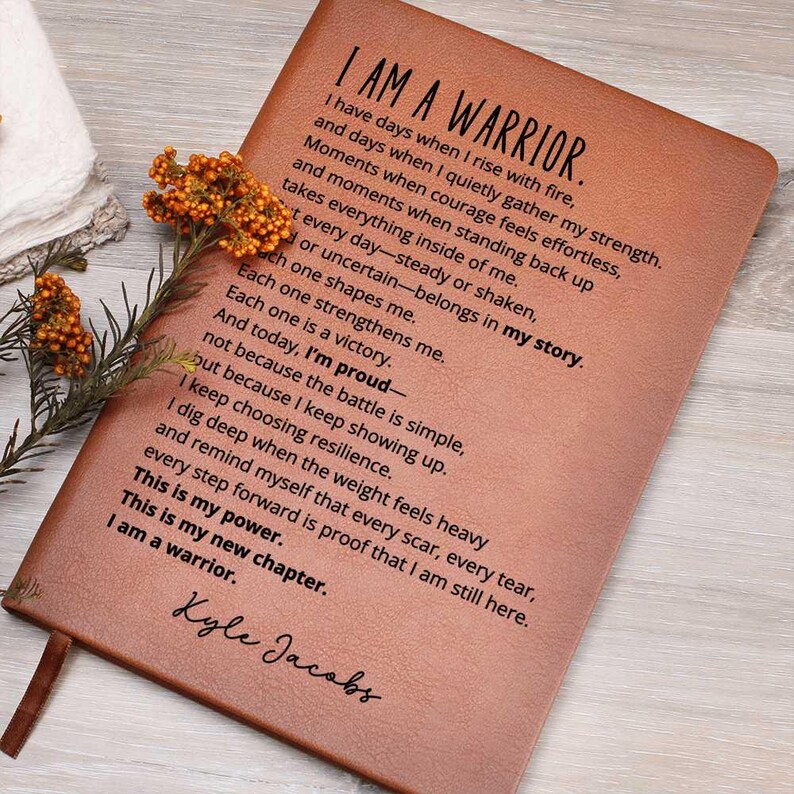 I AM A WARRIOR.
I have days when I rise with fire,
and days when I quietly gather my strength.
Moments when courage feels effortless,
and moments when standing back up
takes everything inside of me.
every day—steady or shaken,
or uncertain—belongs in my story.
Each one shapes me.
Each one strengthens me.
Each one is a victory.
And today, I'm proud—
not because the battle is simple,
but because I keep showing up.
I keep choosing resilience.
I dig deep when the weight feels heavy
and remind myself that every scar, every tear,
every step forward is proof that I am still here.
This is my power.
This is my new chapter.
I am a warrior.
Kyle Jacobs